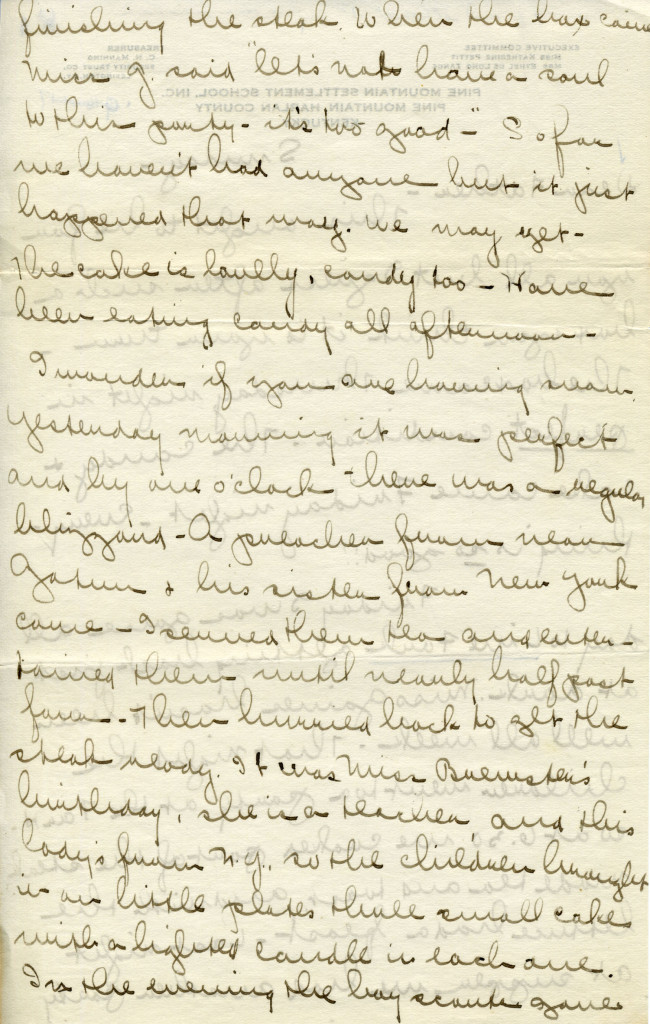 finishing the steak. When the box came
Miss G. said "let's not have a soul
to this party - it's too good -" So far
we haven't had anyone but it just
happened that way. We may yet -
The cake is lovely, candy too - Have
been eating candy all afternoon -
I wonder if you are having snow.
Yesterday morning it was perfect
and by one o'clock there was a regular
blizzard - A preacher from near
& his sister from New York
came - I served them tea and enter-
tained them until nearly half past
four - Then hurried back to get the
steak ready. It was Miss Brewster's
birthday, she is a teacher and this
lady's from N.Y., so the children brought
in on little plates three small cakes
with a lighted candle in each one.
In the evening the boy scouts gave
EXECUTIVE COMMITTEE
MISS KATHERINE PETTIT
TREASURER
C. N. MANNING
PINE MOUNTAIN SETTLEMENT SCHOOL, INC.
PINE MOUNTAIN, HARLAN COUNTY
KENTUCKY